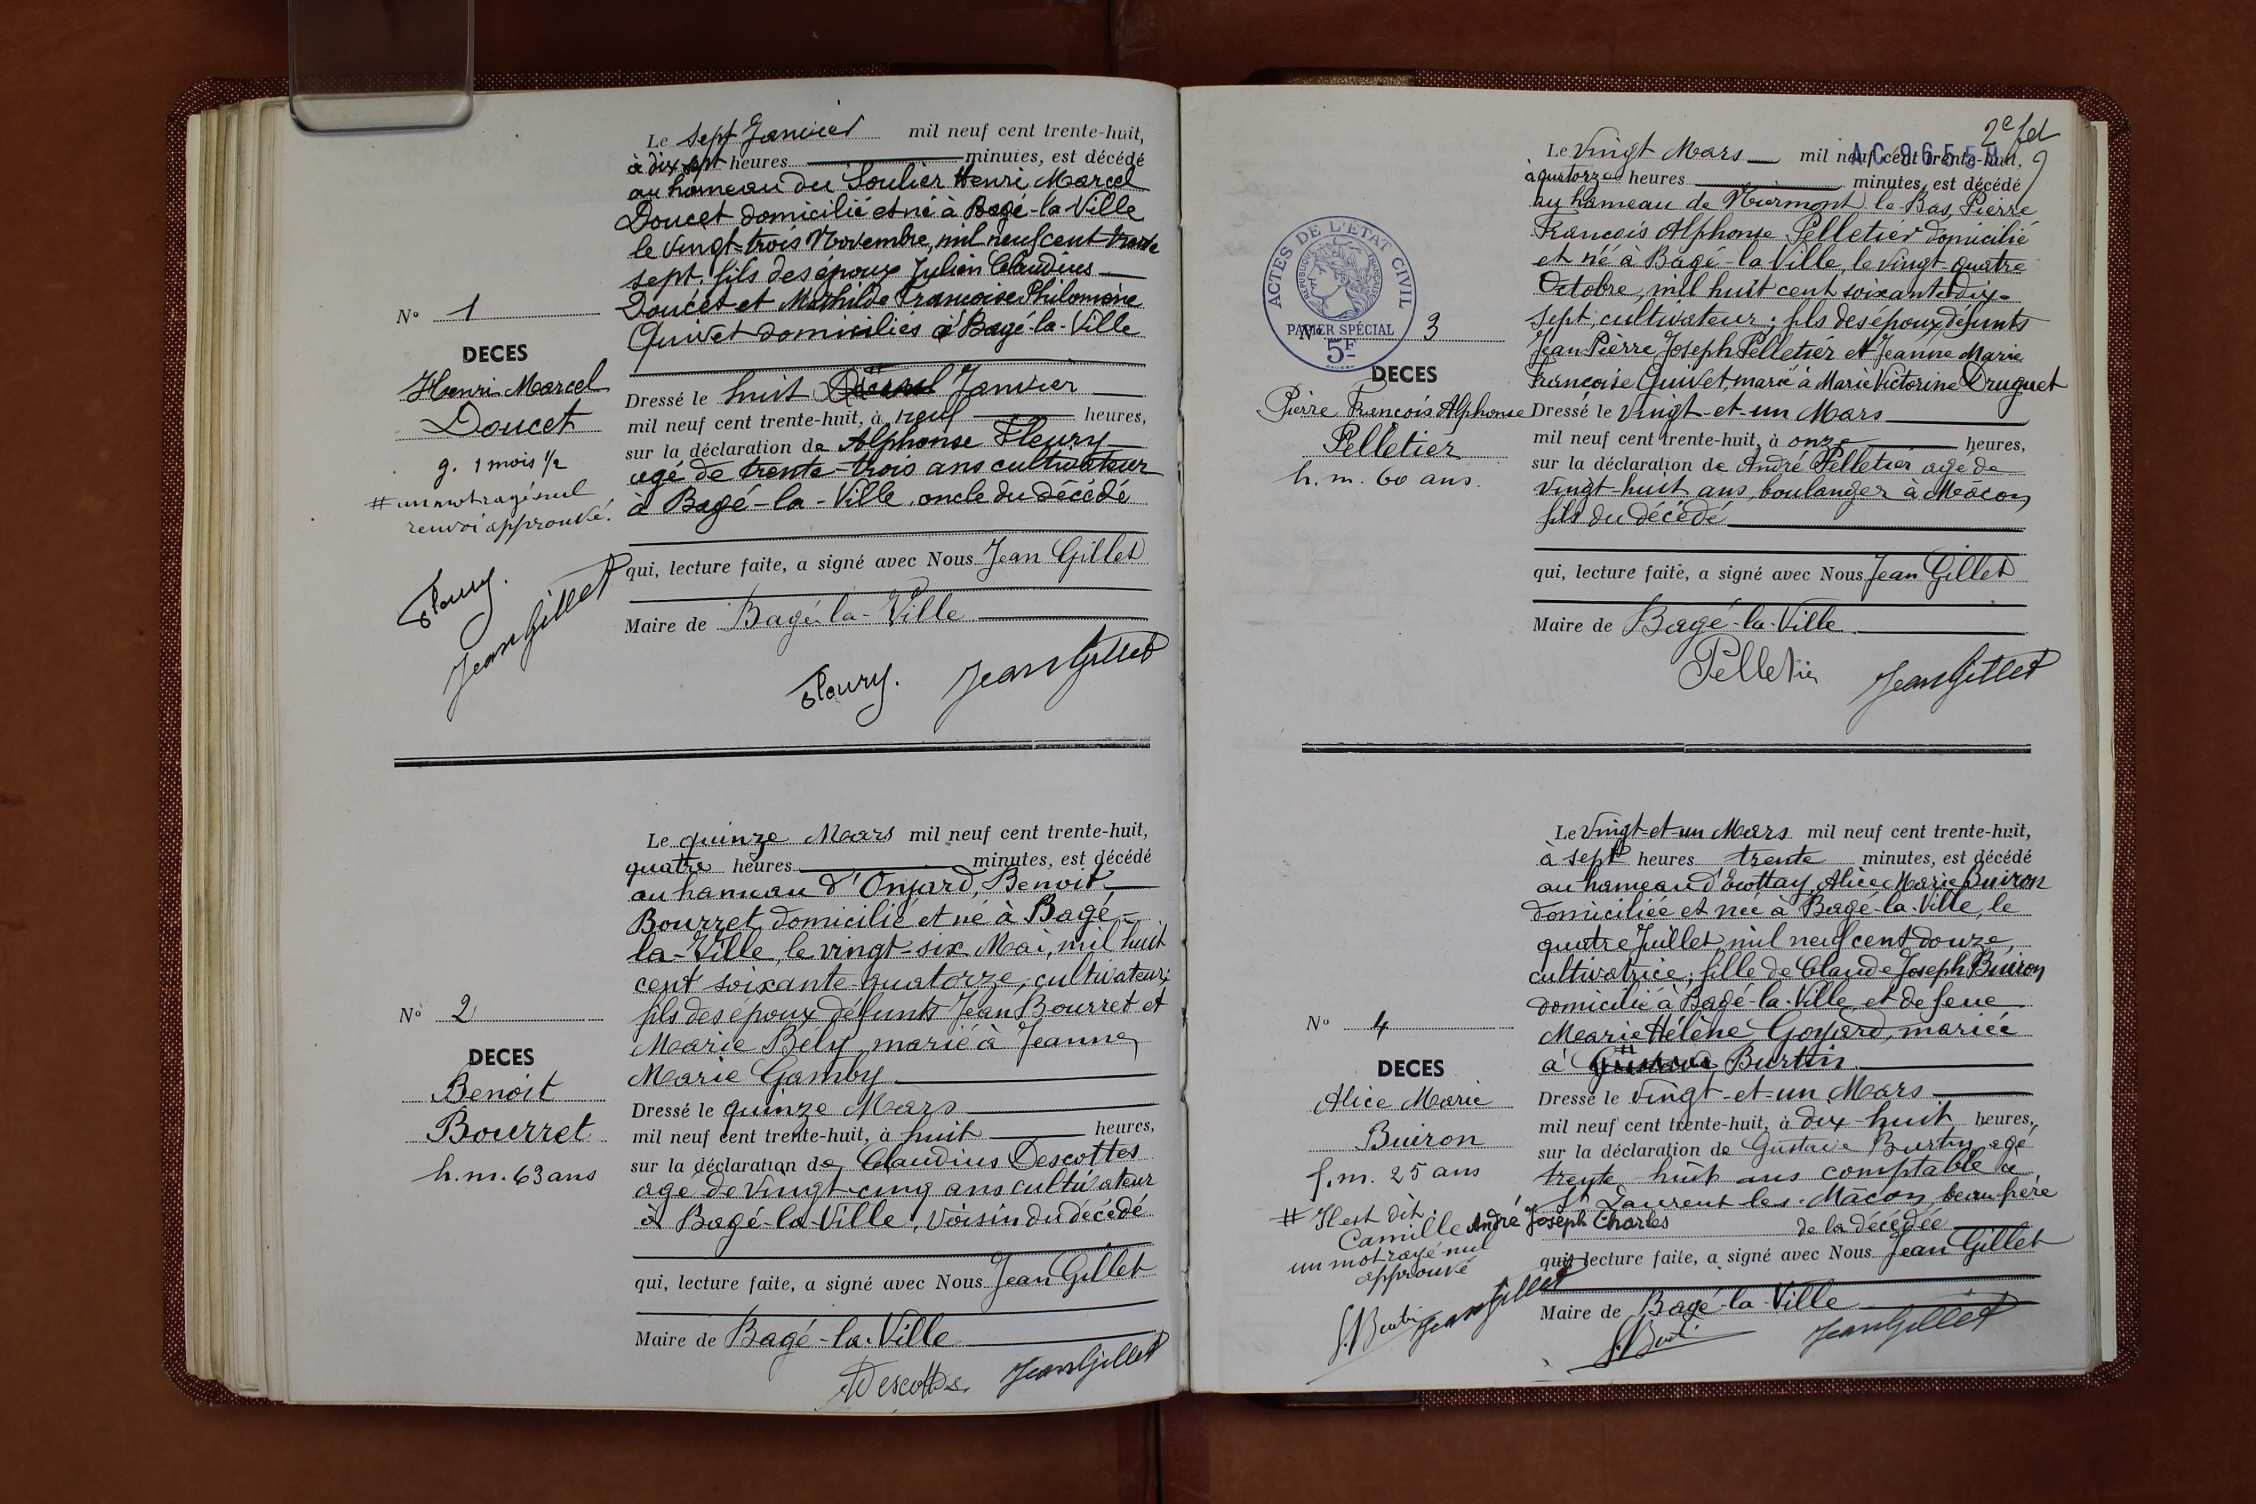 Le sept Janvier mil neuf cent trente-huit,
à dix sept heures minutes, est décédé
au hameau du Soulier Henri Marcel
Doucet domicilié et né à Bagé-la-Ville
le vingt-trois Novembre, mil neuf cent trente
sept. fils des époux Julien Claudius
Doucet et Mathilde Françoise Philomène
Quivet domiciliés à Bagé-la-Ville
N° 1
DECES
Henri Marcel
Doucet
g. 1 mois 1/2
# un mot rayé nul
renvoi approuvé.
Dressé le huit Janvier
mil neuf cent trente-huit, à neuf heures,
sur la déclaration de Alphonse Fleury
agé de trente-trois ans cultivateur
à Bagé-la-Ville, oncle du décédé
qui, lecture faite, a signé avec Nous Jean Gillet
Maire de Bagé-la-Ville
Fleury.
Jean Gillet
Fleury.
Jean Gillet
Le quinze Mars mil neuf cent trente-huit,
quatre heures minutes, est décédé
au hameau d'Onjard, Benoit
Bourret domicilié et né à Bagé-
la-Ville, le vingt-six Mai, mil huit
cent soixante-quatorze, cultivateur;
fils des époux défunts Jean Bourret et
Marie Bély, marié à Jeanne
Marie Gamby
N° 2
DECES
Benoit
Bourret
h.m. 63 ans
Dressé le quinze Mars
mil neuf cent trente-huit, à huit heures,
sur la déclaration de Claudius Descottes
agé de vingt-cinq ans cultivateur
à Bagé-la-Ville, voisin du décédé
qui, lecture faite, a signé avec Nous Jean Gillet
Maire de Bagé-la-Ville
Descottes
Jean Gillet
2e fet
AC 96559
Le vingt Mars mil neuf cent trente-huit,
à quatorze heures minutes, est décédé
au hameau de Miermont le Bas, Pierre
François Alphonse Pelletier domicilié
et né à Bagé-la-Ville, le vingt-quatre
Octobre, mil huit cent soixante-dix-
sept, cultivateur; fils des époux défunts
Jean Pierre Joseph Pelletier et Jeanne Marie
Françoise Quivet, marié à Marie Victorine Druguet
ACTES DE L'ETAT CIVIL
REPUBLIQUE FRANÇAISE
PAPIER SPÉCIAL
5F
N° 3
DECES
Pierre François Alphonse
Pelletier
h.m. 60 ans.
Dressé le vingt-et-un Mars
mil neuf cent trente-huit, à onze heures,
sur la déclaration de André Pelletier agé de
vingt-huit ans, boulanger à Mâcon
fils du décédé
qui, lecture faite, a signé avec Nous Jean Gillet
Maire de Bagé-la-Ville
Pelletier
Jean Gillet
Le vingt-et-un Mars mil neuf cent trente-huit,
à sept heures trente minutes, est décédé
au hameau d'Ecottay, Alice Marie Buiron
domiciliée et née à Bagé-la-Ville, le
quatre Juillet, mil neuf cent douze,
cultivatrice; fille de Claude Joseph Buiron
domicilié à Bagé-la-Ville et de feue
Marie Hélène Goyard, mariée
à Gustave # Burtin
N° 4
DECES
Alice Marie
Buiron
f.m. 25 ans
# Il est dit:
Camille André Joseph Charles
un mot rayé nul
approuvé
Dressé le vingt-et-un Mars
mil neuf cent trente-huit, à dix-huit heures,
sur la déclaration de Gustave Burtin agé
trente huit ans comptable à
St Laurent les Mâcon, beau-frère
de la décédée
qui, lecture faite, a signé avec Nous Jean Gillet
Maire de Bagé-la-Ville
G. Burtin
Jean Gillet
G. Burtin
Jean Gillet